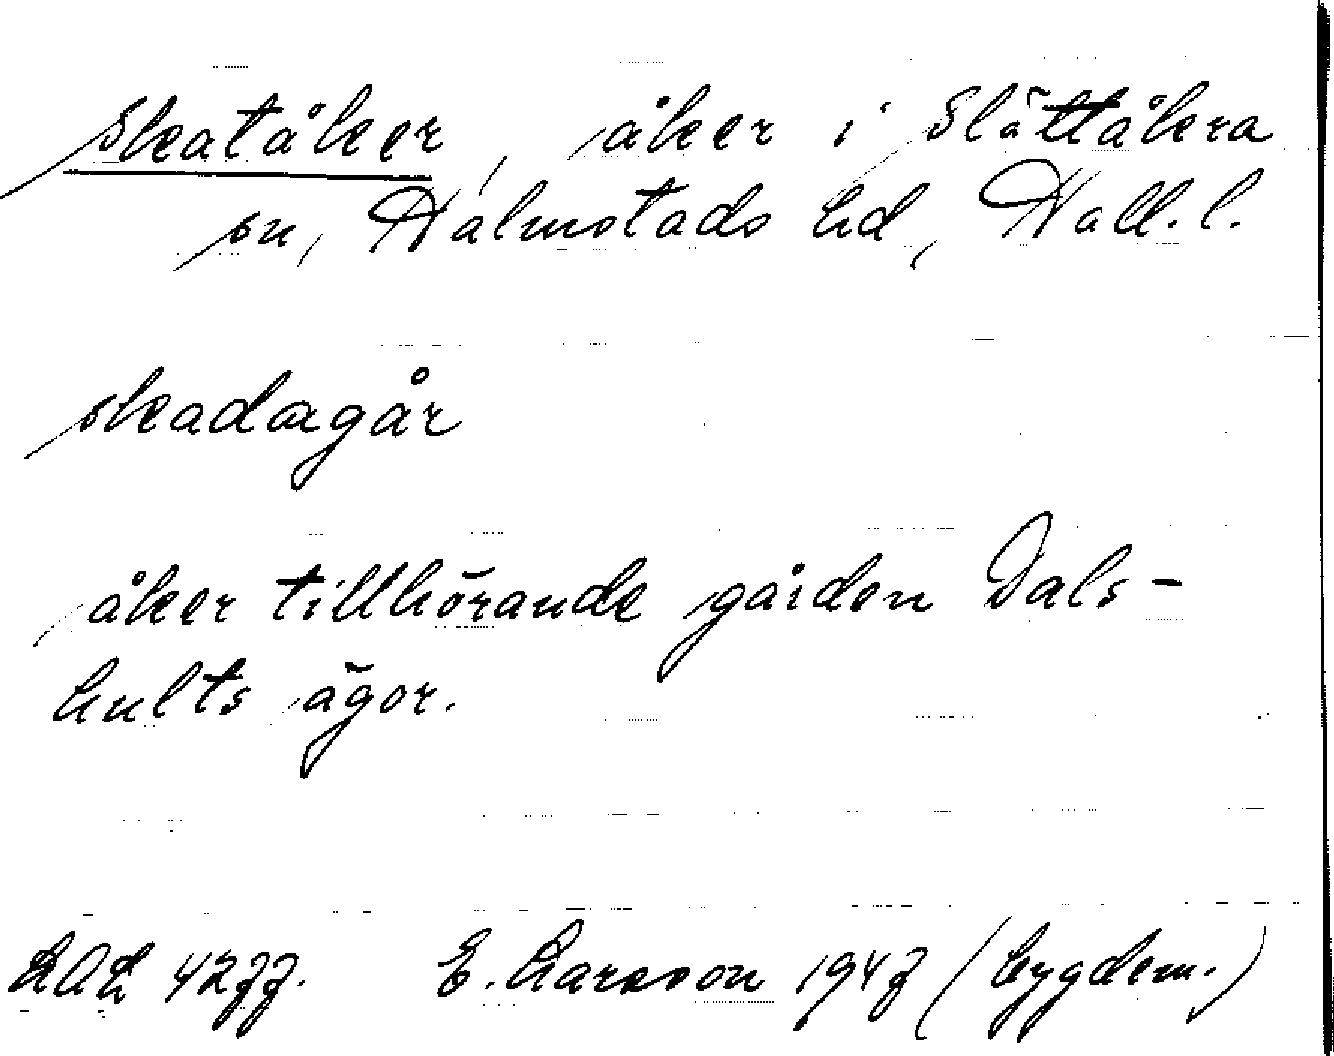 Skatåker, åker i Slättåkra
sn, Halmstads hd, Hall. l.
skadagår
åker tillhörande gården Dals-
hults ägor.
LAL 4277. E. Larsson 1947 (bygdem.)